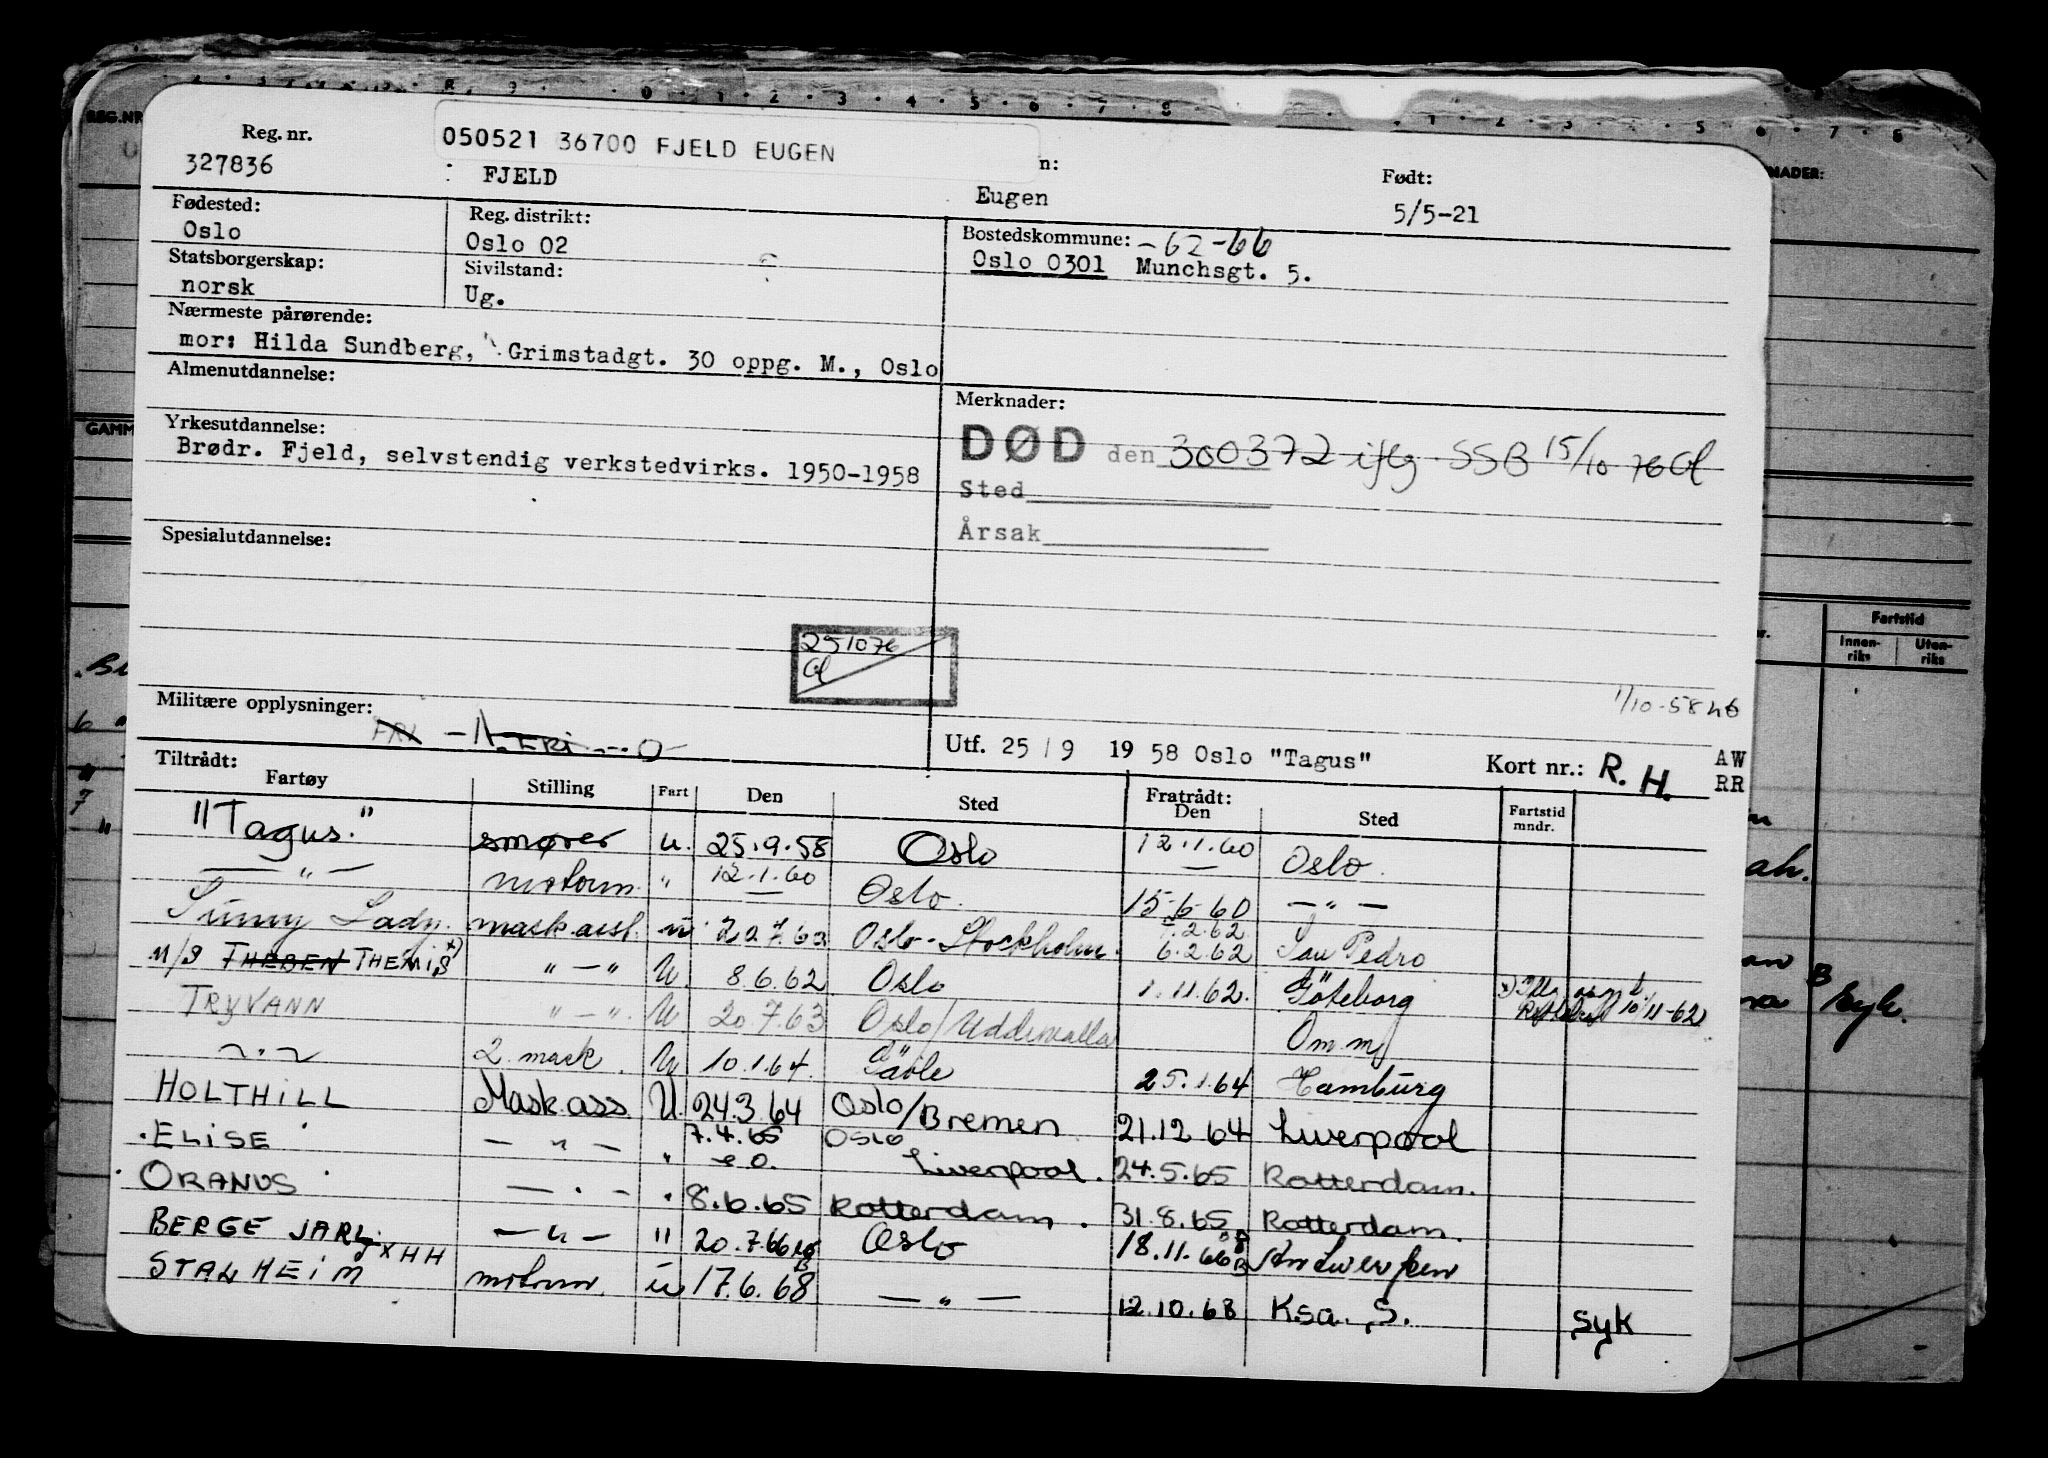 Reg. nr.
327836
050521 36700 FJELD EUGEN
FJELD
n:
Eugen
Født:
5/5-21
Fødested:
Oslo
Reg. distrikt:
Oslo 02
Bostedskommune: -62-66
Oslo 0301 Munchsgt. 5.
Statsborgerskap:
norsk
Sivilstand:
Ug.
Nærmeste pårørende:
mor: Hilda Sundberg, Grimstadgt. 30 oppg. M., Oslo
Almenutdannelse:
Merknader:
DØD den 300372 iflg. SSB 15/10 76 Gl
Sted
Årsak
Yrkesutdannelse:
Brødr. Fjeld, selvstendig verkstedvirks. 1950-1958
Spesialutdannelse:
251076
Gl
Militære opplysninger:
1/10-58
Utf. 25/9 1958 Oslo "Tagus"
Kort nr.: R. H.
AW
RR
Tiltrådt:
Fartøy Stilling Fart Den Sted Fratrådt: Den Sted Fartstid mndr.
"Tagus." smører u. 25.9.58 Oslo 12.1.60 Oslo.
— " — motorm. " 12.1.60 Oslo. 15-6-60 — " —
Sunny Lady. mask.asst. u Oslo-Stockholm. 7.2.62 6.2.62 San Pedro
M/S THEBEN THEMIS x) " — " U. 8.6.62 Oslo 1.11.62. Göteborg x) 10/11-62
TRYVANN " — " U 20.7.63 Oslo/Uddevalla Om.m/
— " — 2. mask. U 10.1.64. Gävle 25.1.64 Hamburg
HOLTHILL Mask.ass U. 24.3.64 Oslo/Bremen 21.12.64 Liverpool
ELISE — " — " 7.4.65 Oslo Liverpool. 24.5.65 Rotterdam.
ORANUS — " — " 8.6.65 Rotterdam. 31.8.65 Rotterdam.
BERGE JARL x HH — " — " 20.7.66 Oslo 18.11.66 Antwerpen
STALHEIM motorm. u 17.6.68 — " — 12.10.68 Ksa. S. Syk
REG.NR
GAMM
NADER:
Fartstid
Innen-riks
Uten-riks